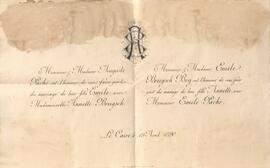 Monsieur & Madame Auguste
Piché ont l'honneur de vous faire part
du mariage de leur fils Emile, avec
Mademoiselle Annette Brugsch
Monsieur & Madame Emile
Brugsch Bey ont l'honneur de vous faire
part du mariage de leur fille Annette, avec
Monsieur Emile Piché.
Le Caire, le Avril